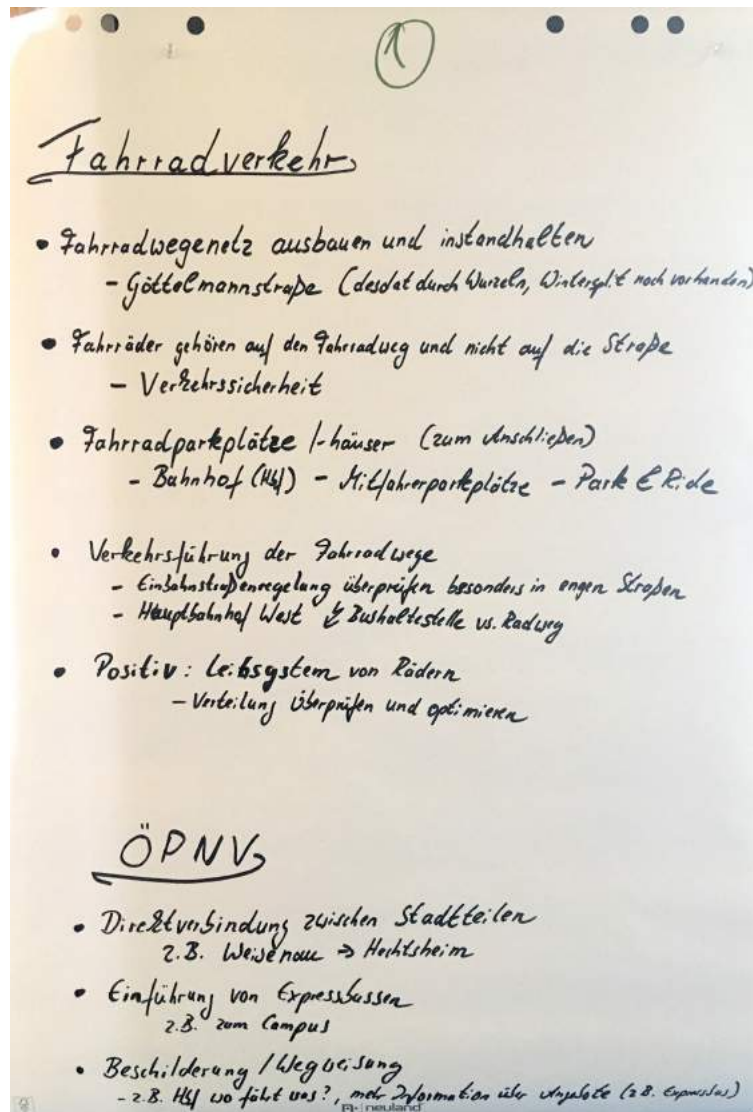 1
Fahrradverkehr
• Fahrradwegenetz ausbauen und instandhalten
- Göttelmannstraße (desolat durch Wurzeln, Wintersplit noch vorhanden)
• Fahrräder gehören auf den Fahrradweg und nicht auf die Straße
- Verkehrssicherheit
• Fahrradparkplätze /-häuser (zum Anschließen)
- Bahnhof (Hbf) - Mitfahrerparkplätze - Park & Ride
• Verkehrsführung der Fahrradwege
- Einbahnstraßenregelung überprüfen besonders in engen Straßen
- Hauptbahnhof West ↯ Bushaltestelle vs. Radweg
• Positiv: Leihsystem von Rädern
- Verteilung überprüfen und optimieren
ÖPNV
• Direktverbindung zwischen Stadtteilen
z.B. Weisenau → Hechtsheim
• Einführung von Expressbussen
z.B. zum Campus
• Beschilderung / Wegweisung
- z.B. Hbf wo fährt was?, mehr Information über Angebote (z.B. Expressbus)
neuland